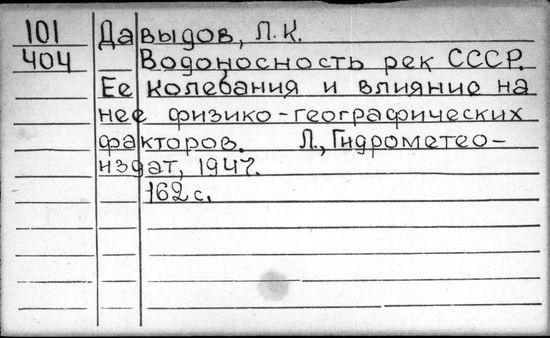 101 Давыдов, Л.К.
404 Водоносность рек СССР.
Ее колебания и влияние на
нее физико-географических
факторов. Л., Гидрометео-
издат, 1947.
162 с.